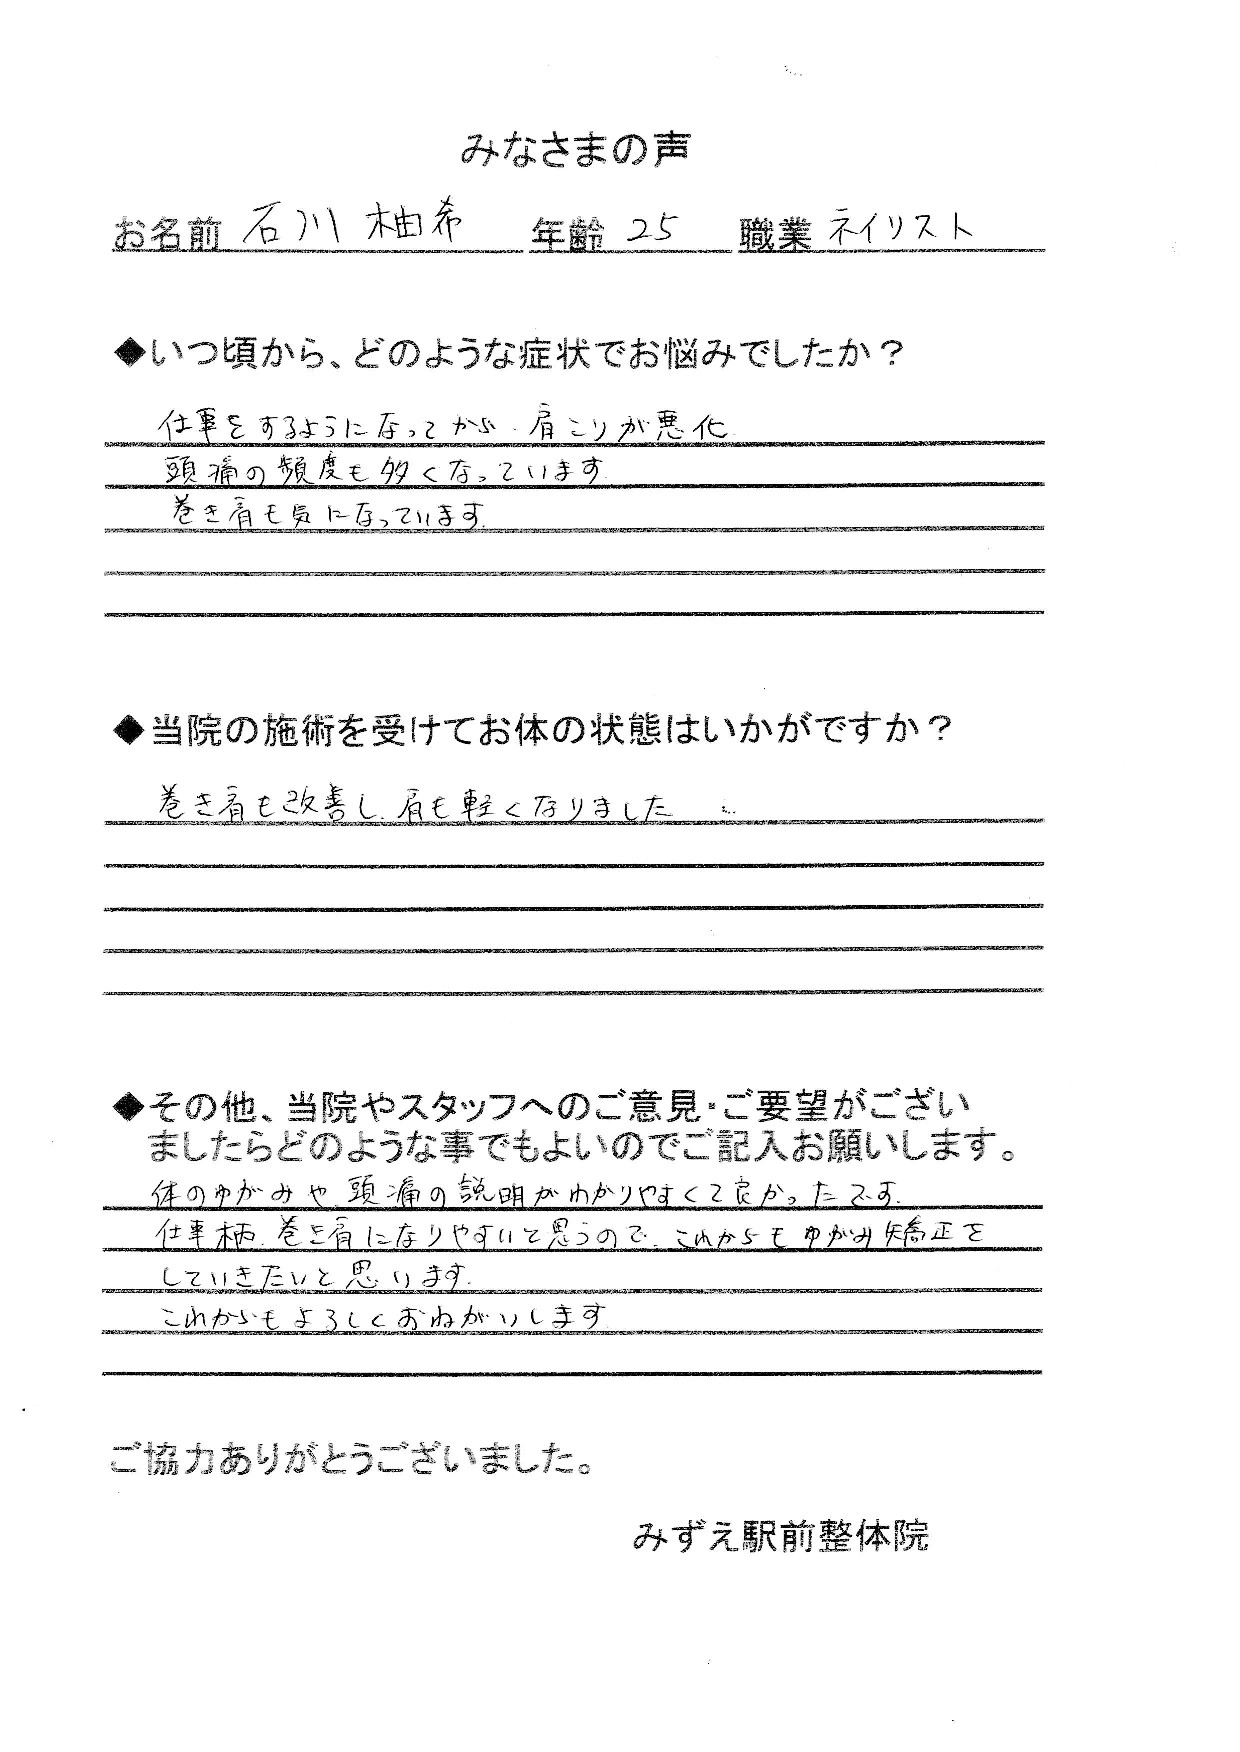 みなさまの声
お名前 石川 柚希 年齢 25 職業 ネイリスト
◆いつ頃から、どのような症状でお悩みでしたか？
仕事をするようになってから、肩こりが悪化
頭痛の頻度も多くなっています。
巻き肩も気になっています。
◆当院の施術を受けてお体の状態はいかがですか？
巻き肩も改善し、肩も軽くなりました
◆その他、当院やスタッフへのご意見・ご要望がござい
ましたらどのような事でもよいのでご記入お願いします。
体のゆがみや頭痛の説明がわかりやすくて良かったです。
仕事柄、巻き肩になりやすいと思うので、これからもゆがみ矯正を
していきたいと思います。
これからもよろしくおねがいします
ご協力ありがとうございました。
みずえ駅前整体院